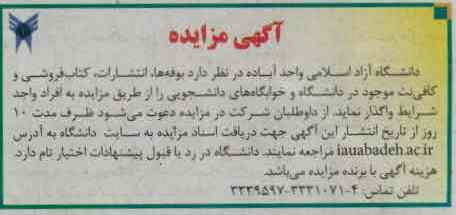 آگهی مزایده
دانشگاه آزاد اسلامی واحد آباده در نظر دارد بوفه‌ها، انتشارات، کتاب‌فروشی و
کافی‌نت موجود در دانشگاه و خوابگاه‌های دانشجویی را از طریق مزایده به افراد واجد
شرایط واگذار نماید. از داوطلبان شرکت در مزایده دعوت می‌شود ظرف مدت ۱۰
روز از تاریخ انتشار این آگهی جهت دریافت اسناد مزایده به سایت دانشگاه به آدرس
iauabadeh.ac.ir مراجعه نمایند. دانشگاه در رد یا قبول پیشنهادات اختیار تام دارد.
هزینه آگهی با برنده مزایده می‌باشد.
تلفن تماس: ۴-۳۳۳۱۰۷۱-۳۳۳۹۵۹۷